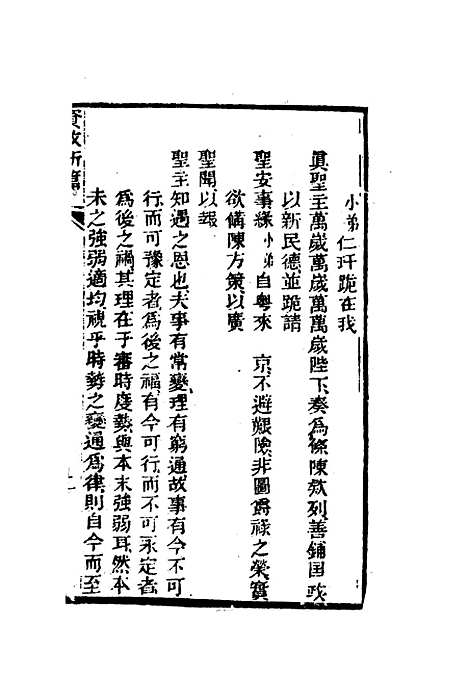 小弟仁玕跪在我
眞聖主萬歲萬歲萬萬歲陛下奏爲條陳欵列善鋪囯政
以新民德並跪請
聖安事緣小弟自粤來　京不避艱險非圖爵祿之榮實
欲備陳方策以廣
聖聞以報
聖主知遇之恩也夫事有常變理有窮通故事有今不可
行而可豫定者爲後之福有今可行而不可永定者
爲後之禍其理在于審時度勢與本末強弱耳然本
末之強弱適均視乎時勢之變通爲律則自今而至
資政新篇
一